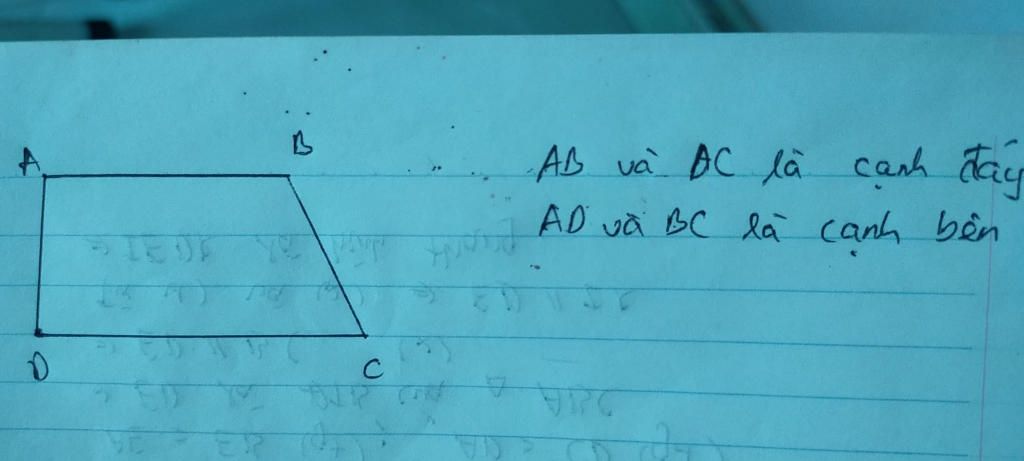 A
B
AB và DC là cạnh đáy
AD và BC là cạnh bên
D
C